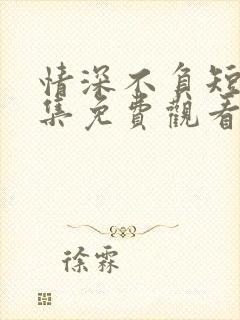 情深不負短
集免費觀看
徐霖